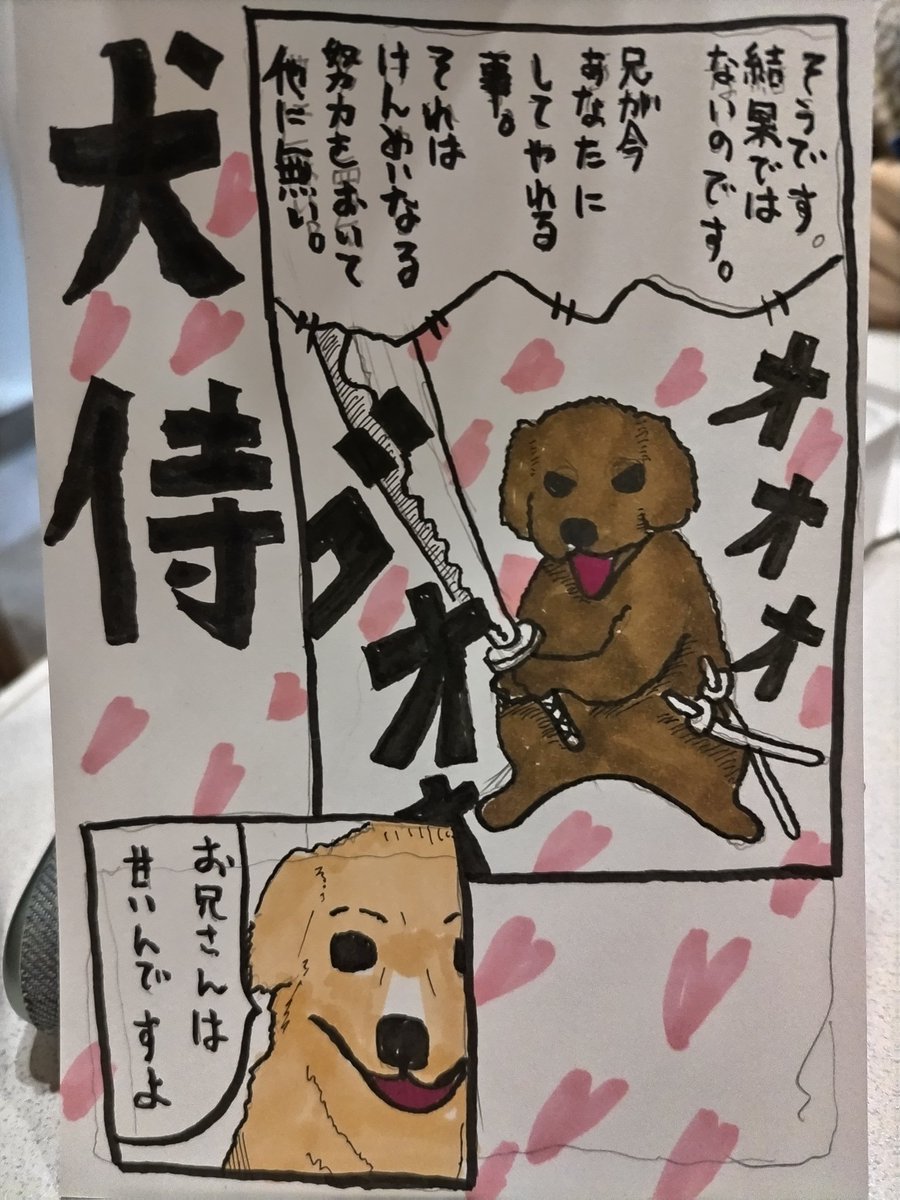 そうです。
結果では
ないのです。
兄が今
あなたに
してやれる
事。
それは
けんめいなる
努力をおいて
他に無い。
オオオ
グオオ
犬侍
お兄さんは
甘いんですよ